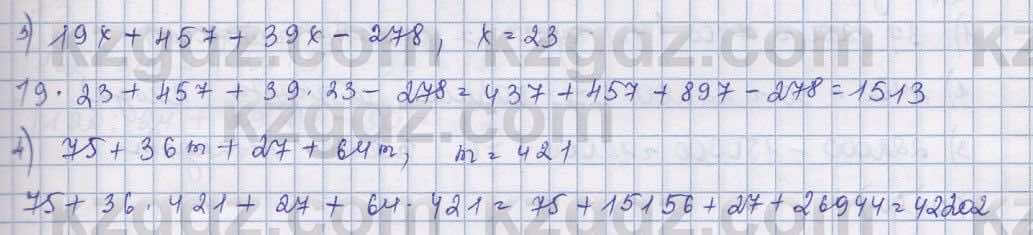 3) 19x + 457 + 39x - 278, x = 23
19 · 23 + 457 + 39 · 23 - 278 = 437 + 457 + 897 - 278 = 1513
4) 75 + 36m + 27 + 64m, m = 421
75 + 36 · 421 + 27 + 64 · 421 = 75 + 15156 + 27 + 26944 = 42202
kzgdz.com